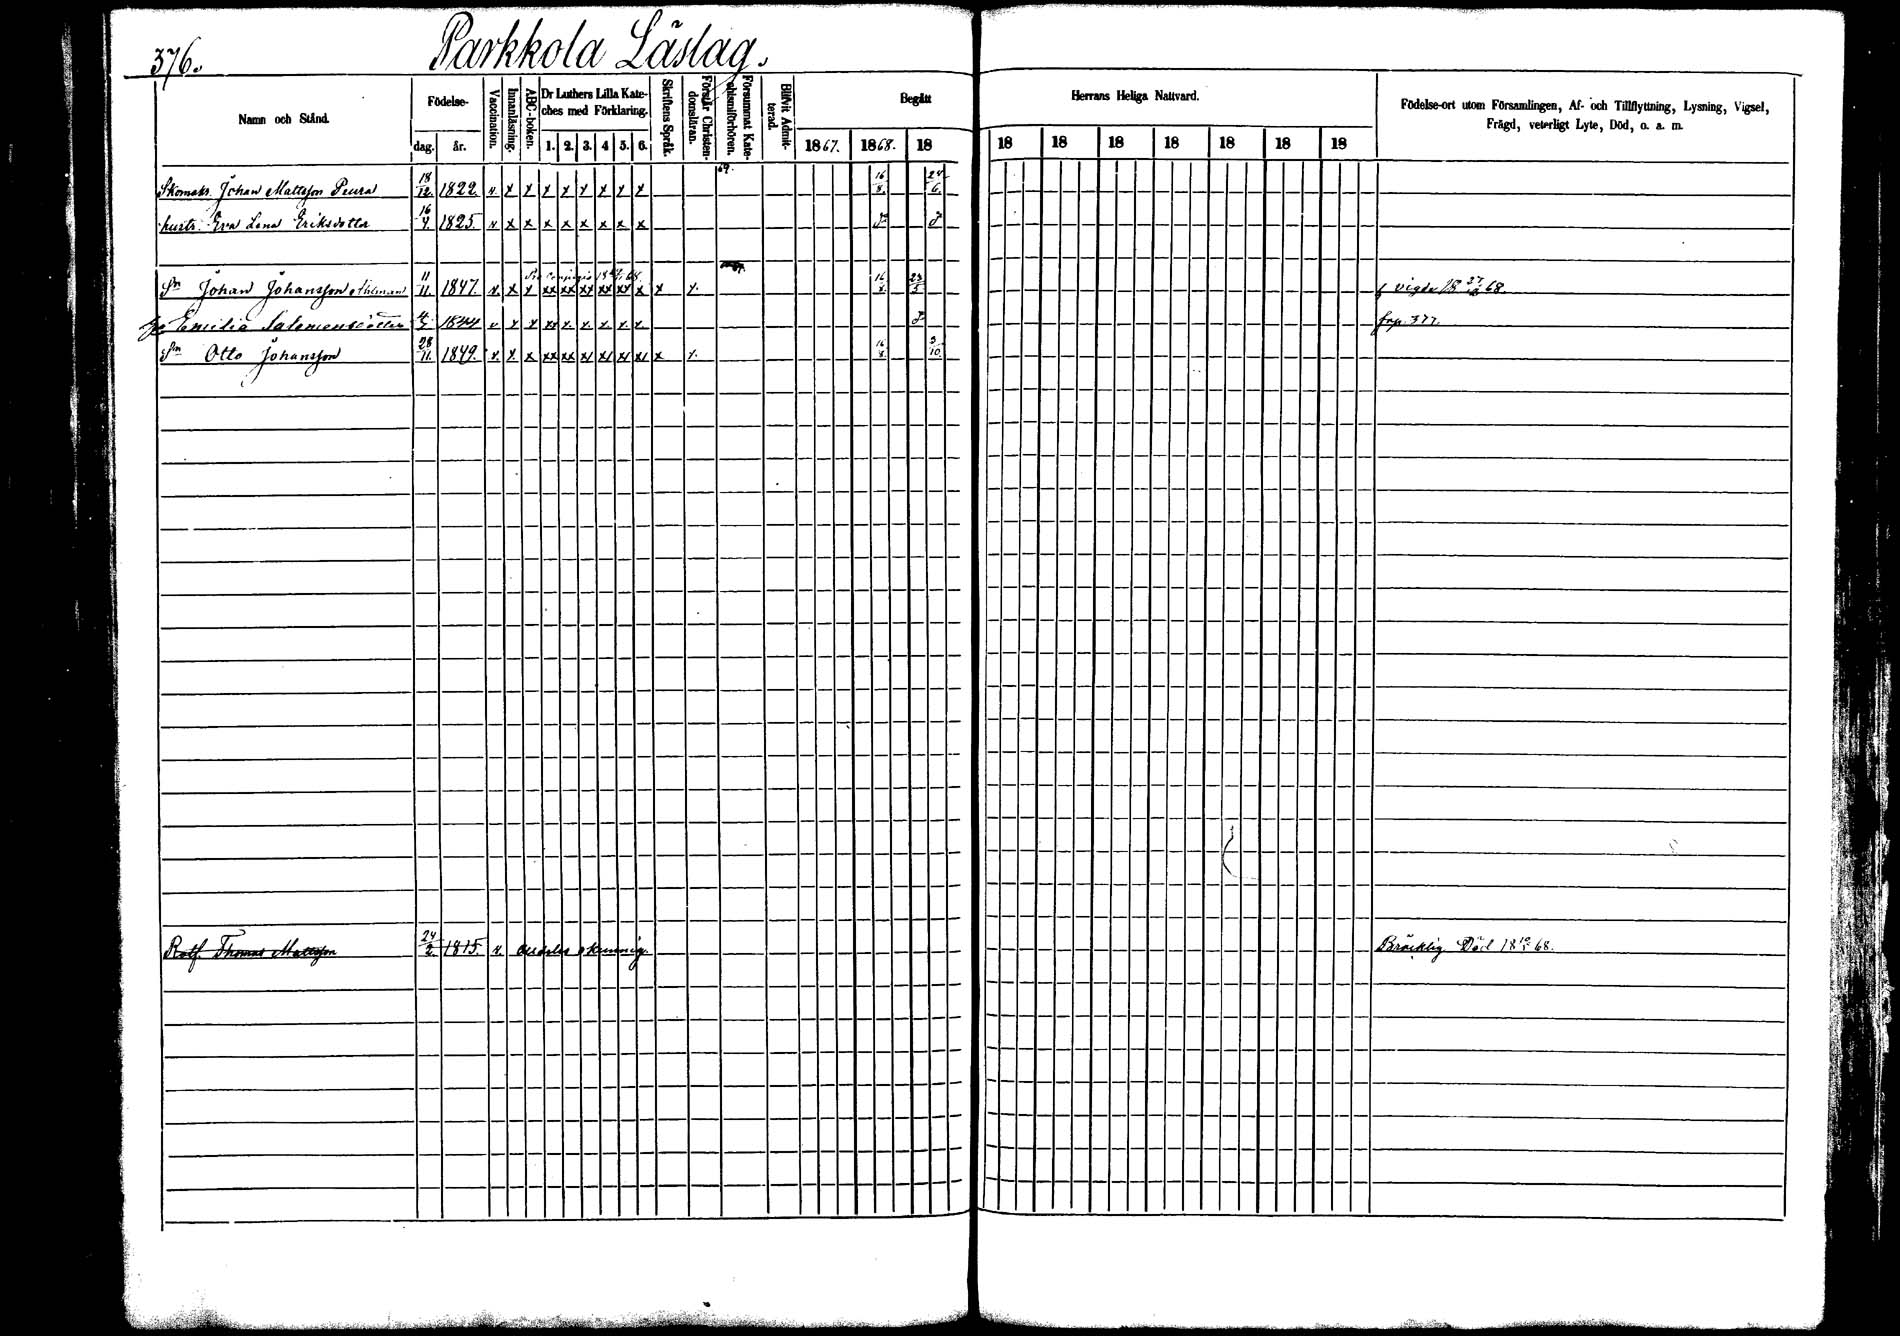 376.
Parkkola Läslag.
Namn och Stånd.
Födelse-
dag. år.
Vaccination.
Innanläsning.
ABC-boken.
Dr Luthers Lilla Kate-
ches med Förklaring.
1. 2. 3. 4 5. 6.
Skriftens Språk.
Förstår Christen-
domsläran.
Försummat Kate-
chismiförhören.
Blifvit Admit-
terad.
Begått
1867. 1868. 18
Herrans Heliga Nattvard.
18 18 18 18 18 18 18
Födelse-ort utom Församlingen, Af- och Tillflyttning, Lysning, Vigsel,
Frägd, veterligt Lyte, Död, o. a. m.
69.
Skomak. Johan Mattsson Peura 18/12. 1822. v x x x x x x x x 16/8. 24/6.
hustr. Eva Lena Eriksdotter 16/4. 1825. v x x x x x x x x
Sn Johan Johansson 11/11. 1847. v. x x xx xx xx xx xx x x x. 16/8. 23/5 vigde 18 27/12 68.
Emilia Salomonsdotter 1844 v x x xx x. x. x. x. x. frp. 377.
Sn Otto Johansson 28/11. 1849. v. x x xx xx x x x x x x. 16/8. 3/10.
Rotf. Thomas Mattsson 24/2. 1815. v. Alldeles okunnig. Bräcklig Död 18 68.